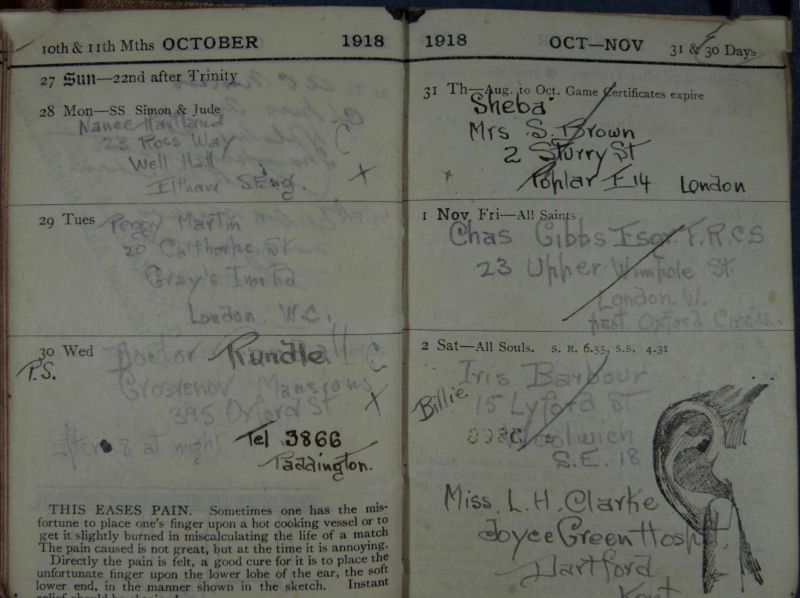 10th & 11th Mths OCTOBER 1918
27 Sun—22nd after Trinity
28 Mon—SS. Simon & Jude
23 Ross Way
Well Hall
C
x
29 Tues Peggy Martin
20 Calthorpe St
Gray's Inn Rd
London. W.C.
30 Wed Doctor Rundle
P.S.
C
Grosvenor Mansions
x
395 Oxford St
after 8 at night Tel 3866
Paddington.
THIS EASES PAIN. Sometimes one has the mis-
fortune to place one's finger upon a hot cooking vessel or to
get it slightly burned in miscalculating the life of a match
The pain caused is not great, but at the time it is annoying.
Directly the pain is felt, a good cure for it is to place the
unfortunate finger upon the lower lobe of the ear, the soft
lower end, in the manner shown in the sketch. Instant
1918 OCT—NOV 31 & 30 Days
31 Th—Aug. to Oct. Game Certificates expire
Sheba
Mrs S. Brown
2 Sturry St
Poplar E14 London
1 Nov. Fri—All Saints
Chas Gibbs Esqr. F.R.C.S
23 Upper Wimpole St
London. W.
past Oxford Circus.
2 Sat—All Souls. S. R. 6.55, S.S. 4.31
Iris Barbour
Billie
15 Lyford St
Woolwich
S.E. 18
Miss. L. H. Clarke
Joyce Green Hosp
Dartford
Kent